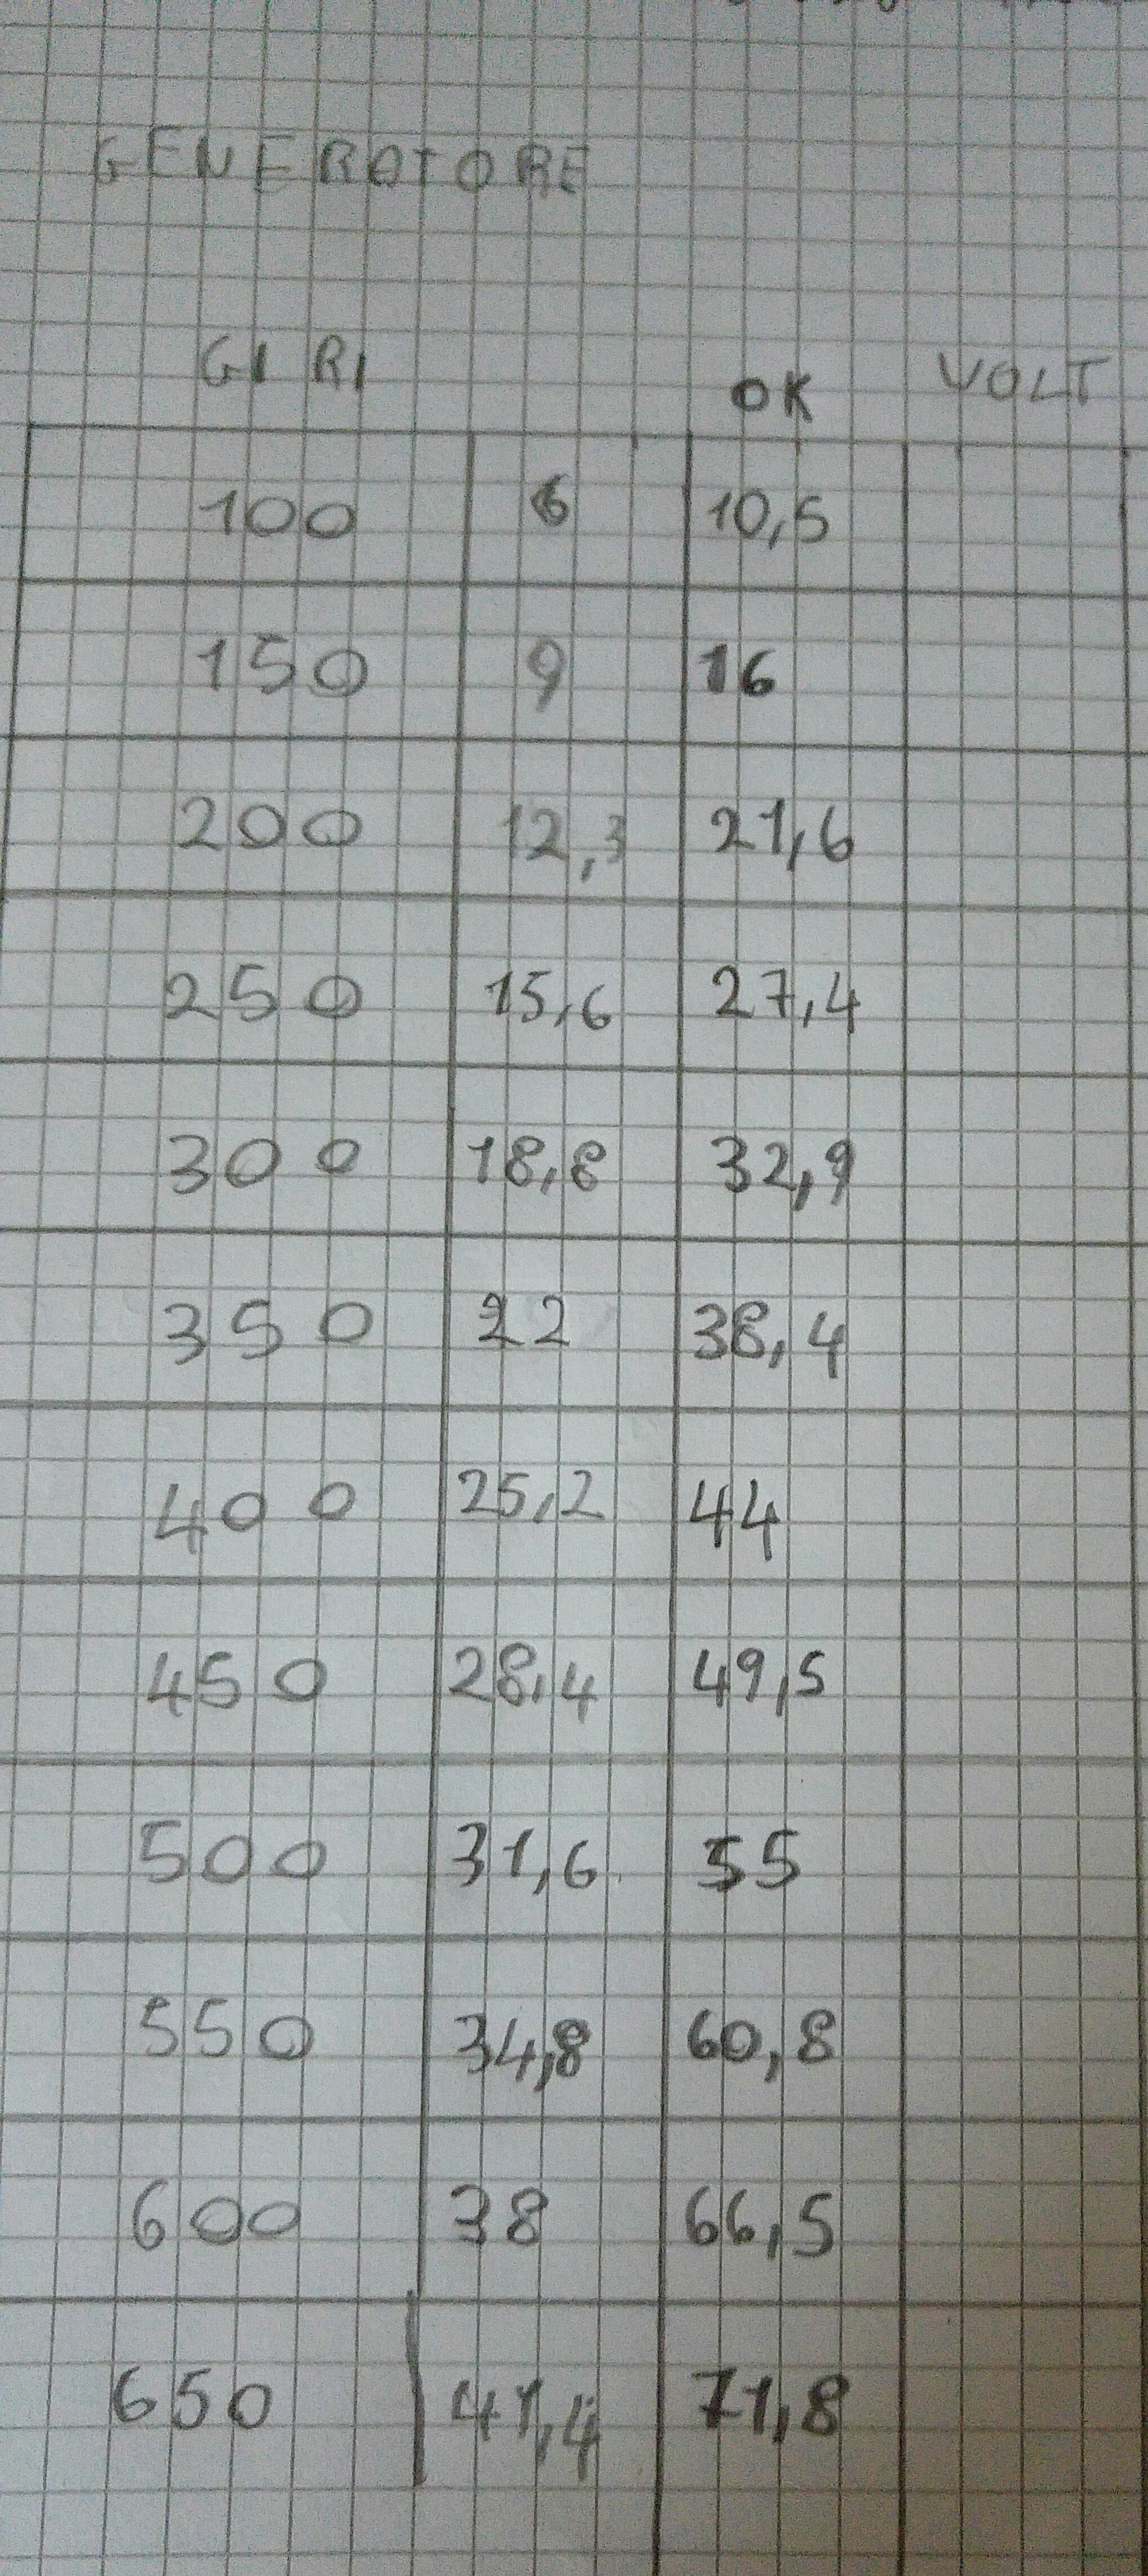 GENERATORE
GIRI OK VOLT
100 6 10,5
150 9 16
200 12,3 21,6
250 15,6 27,4
300 18,8 32,9
350 22 38,4
400 25,2 44
450 28,4 49,5
500 31,6 55
550 34,8 60,8
600 38 66,5
650 41,4 71,8